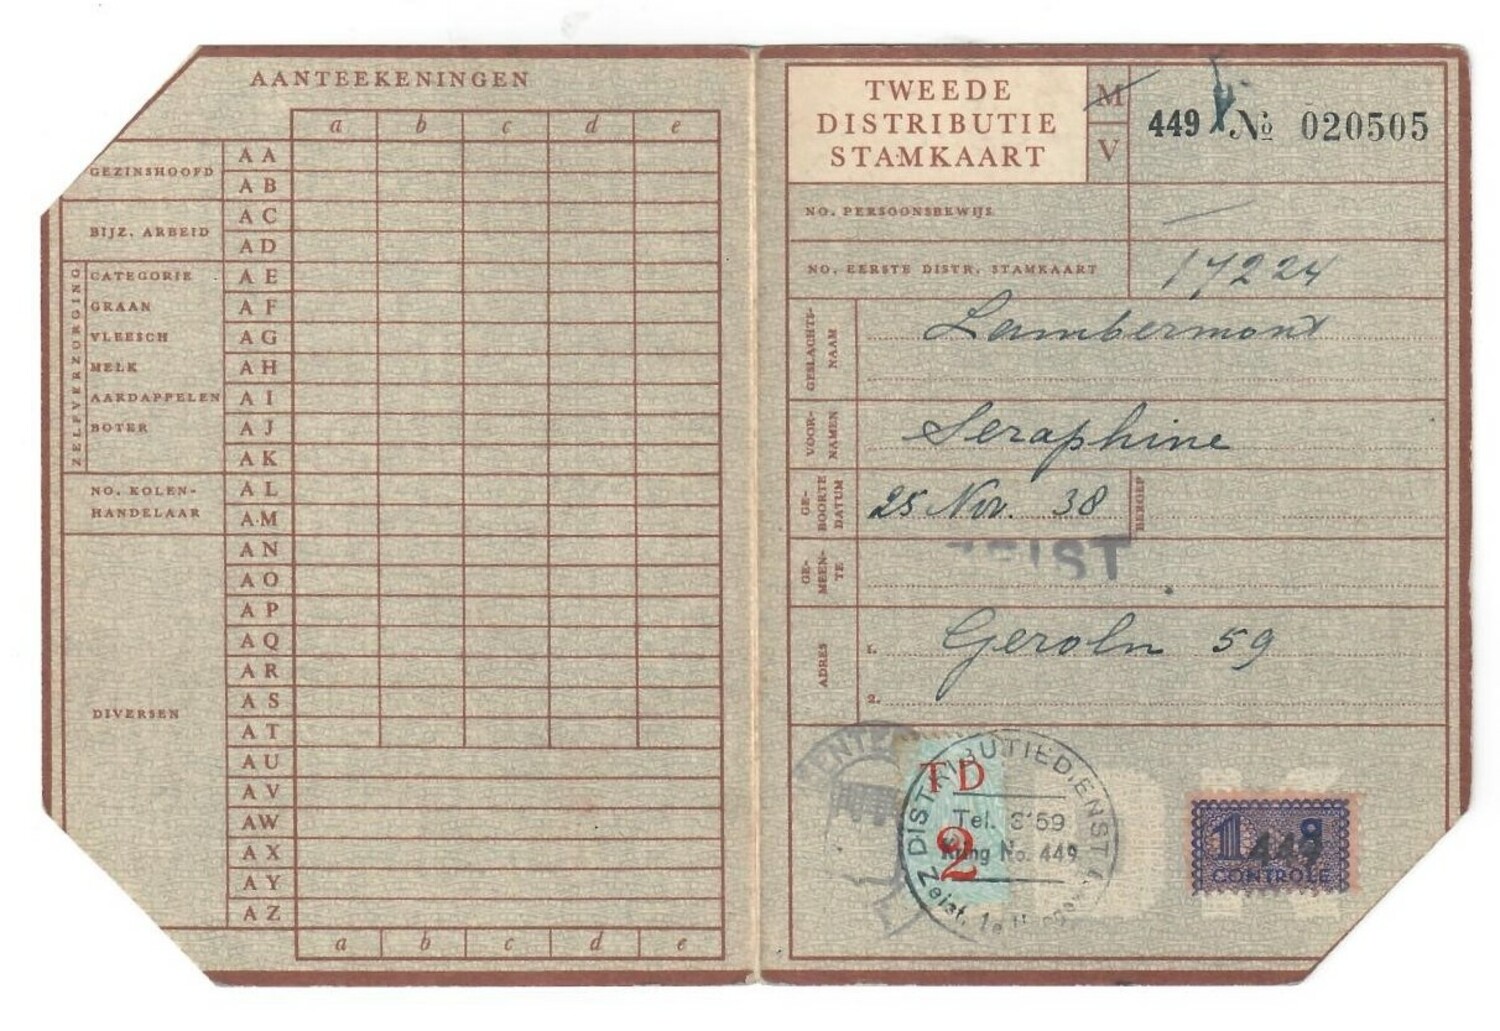 AANTEEKENINGEN
a b c d e
GEZINSHOOFD
A A
A B
BIJZ. ARBEID
A C
A D
ZELFVERZORGING
CATEGORIE A E
GRAAN A F
VLEESCH A G
MELK A H
AARDAPPELEN A I
BOTER A J
A K
NO. KOLEN-
HANDELAAR
A L
A M
DIVERSEN
A N
A O
A P
A Q
A R
A S
A T
A U
A V
A W
A X
A Y
A Z
a b c d e
TWEEDE
DISTRIBUTIE
STAMKAART
M
V
449 No 020505
NO. PERSOONSBEWIJS
NO. EERSTE DISTR. STAMKAART 17224
GESLACHTS-
NAAM
Lambermont
VOOR-
NAMEN
Seraphine
GE-
BOORTE
DATUM
25 Nov. 38
BEROEP
GE-
MEEN-
TE
IST
ADRES
1. Geroln 59
2.
DISTRIBUTIEDIENST
TD
2
Tel. 3159
Kring No. 449
Zeist, 1e
1 8
449
CONTRÔLE